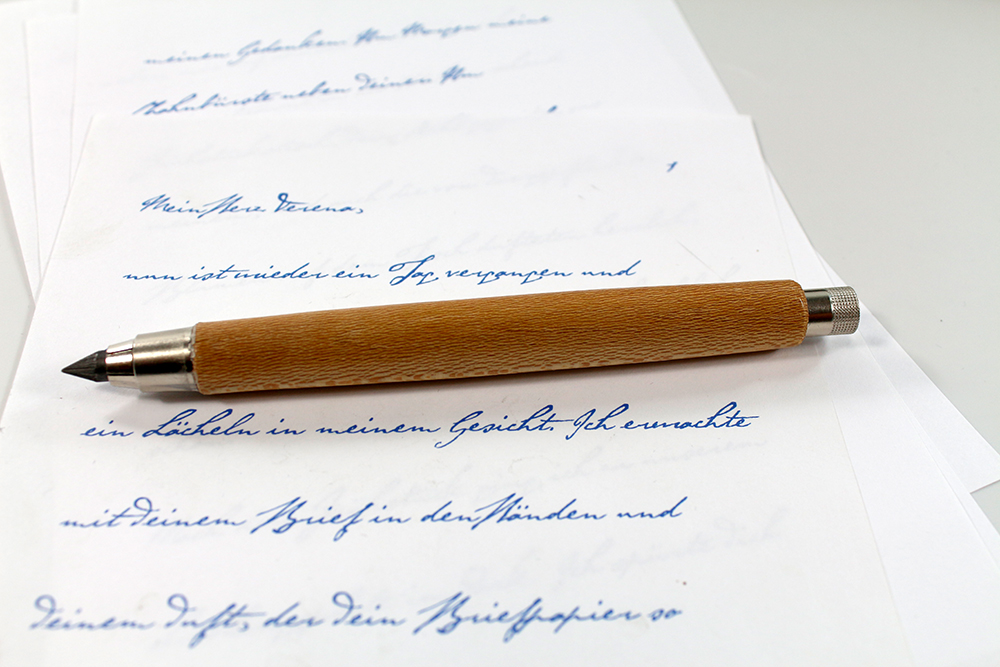 meinen Gedanken. Am Morgen meine
Zahnbürste neben deinen
1
Mein Herz Verena,
nun ist wieder ein Tag vergangen und
ein Lächeln in meinem Gesicht. Ich erwachte
mit deinem Brief in den Händen und
deinem Duft, der dein Briefpapier so